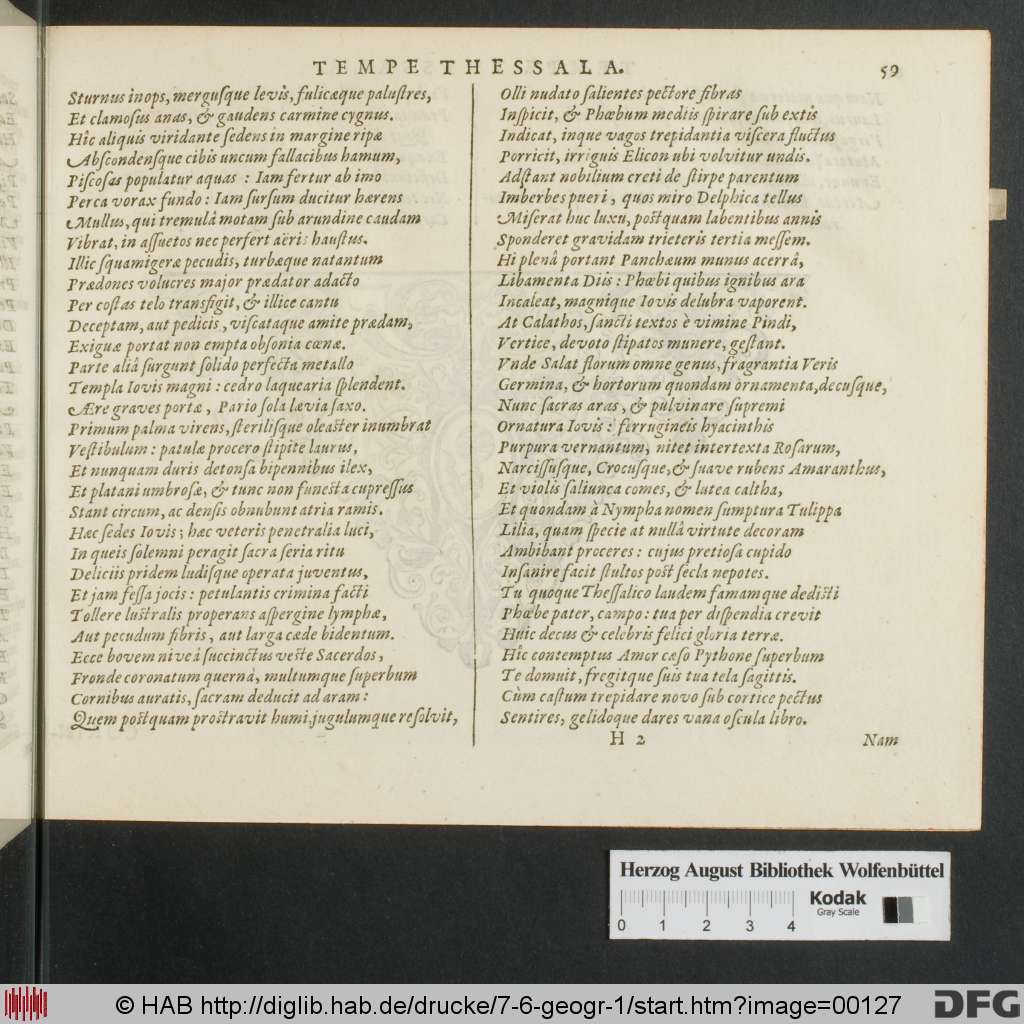 TEMPE THESSALA. 59
Sturnus inops, mergusque levis, fulicæque palustres,
Et clamosus anas, & gaudens carmine cygnus.
Hîc aliquis viridante sedens in margine ripæ
Abscondensque cibis uncum fallacibus hamum,
Piscosas populatur aquas : Iam fertur ab imo
Perca vorax fundo : Iam sursum ducitur hærens
Mullus, qui tremulâ motam sub arundine caudam
Vibrat, in assuetos nec perfert aëris haustus.
Illic squamigeræ pecudis, turbæque natantum
Prædones volucres major prædator adacto
Per costas telo transfigit, & illice cantu
Deceptam, aut pedicis, viscataque amite prædam,
Exiguæ portat non empta obsonia cœnæ.
Parte aliâ surgunt solido perfecta metallo
Templa Iovis magni : cedro laquearia splendent.
Ære graves portæ, Pario sola lævia saxo.
Primum palma virens, sterilisque oleaster inumbrat
Vestibulum : patulæ procero stipite laurus,
Et nunquam duris detonsa bipennibus ilex,
Et platani umbrosæ, & tunc non funesta cupressus
Stant circum, ac densis obnubunt atria ramis.
Hæc sedes Iovis ; hæc veteris penetralia luci,
In queis solemni peragit sacra seria ritu
Deliciis pridem ludisque operata juventus,
Et jam fessa jocis : petulantis crimina facti
Tollere lustralis properans aspergine lymphæ,
Aut pecudum fibris, aut larga cæde bidentum.
Ecce bovem niveâ succinctus veste Sacerdos,
Fronde coronatum quernâ, multumque superbum
Cornibus auratis, sacram deducit ad aram :
Quem postquam prostravit humi, jugulumque resolvit,
Olli nudato salientes pectore fibras
Inspicit, & Phœbum mediis spirare sub extis
Indicat, inque vagos trepidantia viscera fluctus
Porricit, irriguis Elicon ubi volvitur undis.
Adstant nobilium creti de stirpe parentum
Imberbes pueri, quos miro Delphica tellus
Miserat huc luxu, postquam labentibus annis
Sponderet gravidam trieteris tertia messem.
Hi plenâ portant Panchæum munus acerrâ,
Libamenta Diis : Phœbi quibus ignibus ara
Incaleat, magnique Iovis delubra vaporent.
At Calathos, sancti textos è vimine Pindi,
Vertice, devoto stipatos munere, gestant.
Vnde Salat florum omne genus, fragrantia Veris
Germina, & hortorum quondam ornamenta, decusque,
Nunc sacras aras, & pulvinare supremi
Ornatura Iovis : ferrugineis hyacinthis
Purpura vernantum, nitet intertexta Rosarum,
Narcissusque, Crocusque, & suave rubens Amaranthus,
Et violis saliunca comes, & lutea caltha,
Et quondam à Nympha nomen sumptura Tulippa
Lilia, quam specie at nullâ virtute decoram
Ambibant proceres : cujus pretiosa cupido
Insanire facit stultos post secla nepotes.
Tu quoque Thessalico laudem famamque dedisti
Phœbe pater, campo : tua per dispendia crevit
Huic decus & celebris felici gloria terræ.
Hîc contemptus Amor cæso Pythone superbum
Te domuit, fregitque suis tua tela sagittis.
Cùm castum trepidare novo sub cortice pectus
Sentires, gelidoque dares vana oscula libro.
H 2 Nam
Herzog August Bibliothek Wolfenbüttel
0 1 2 3 4
Kodak
Gray Scale
© HAB http://diglib.hab.de/drucke/7-6-geogr-1/start.htm?image=00127
DFG